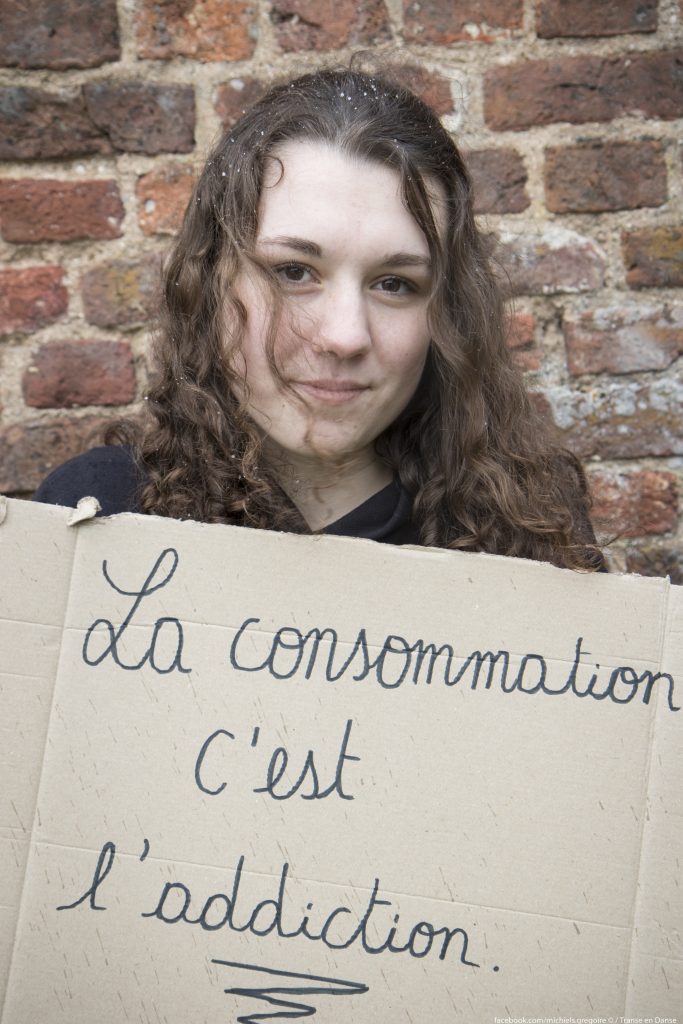 La consommation
c'est
l'addiction.
facebook.com/michiels.gregoire © / Transe en Danse